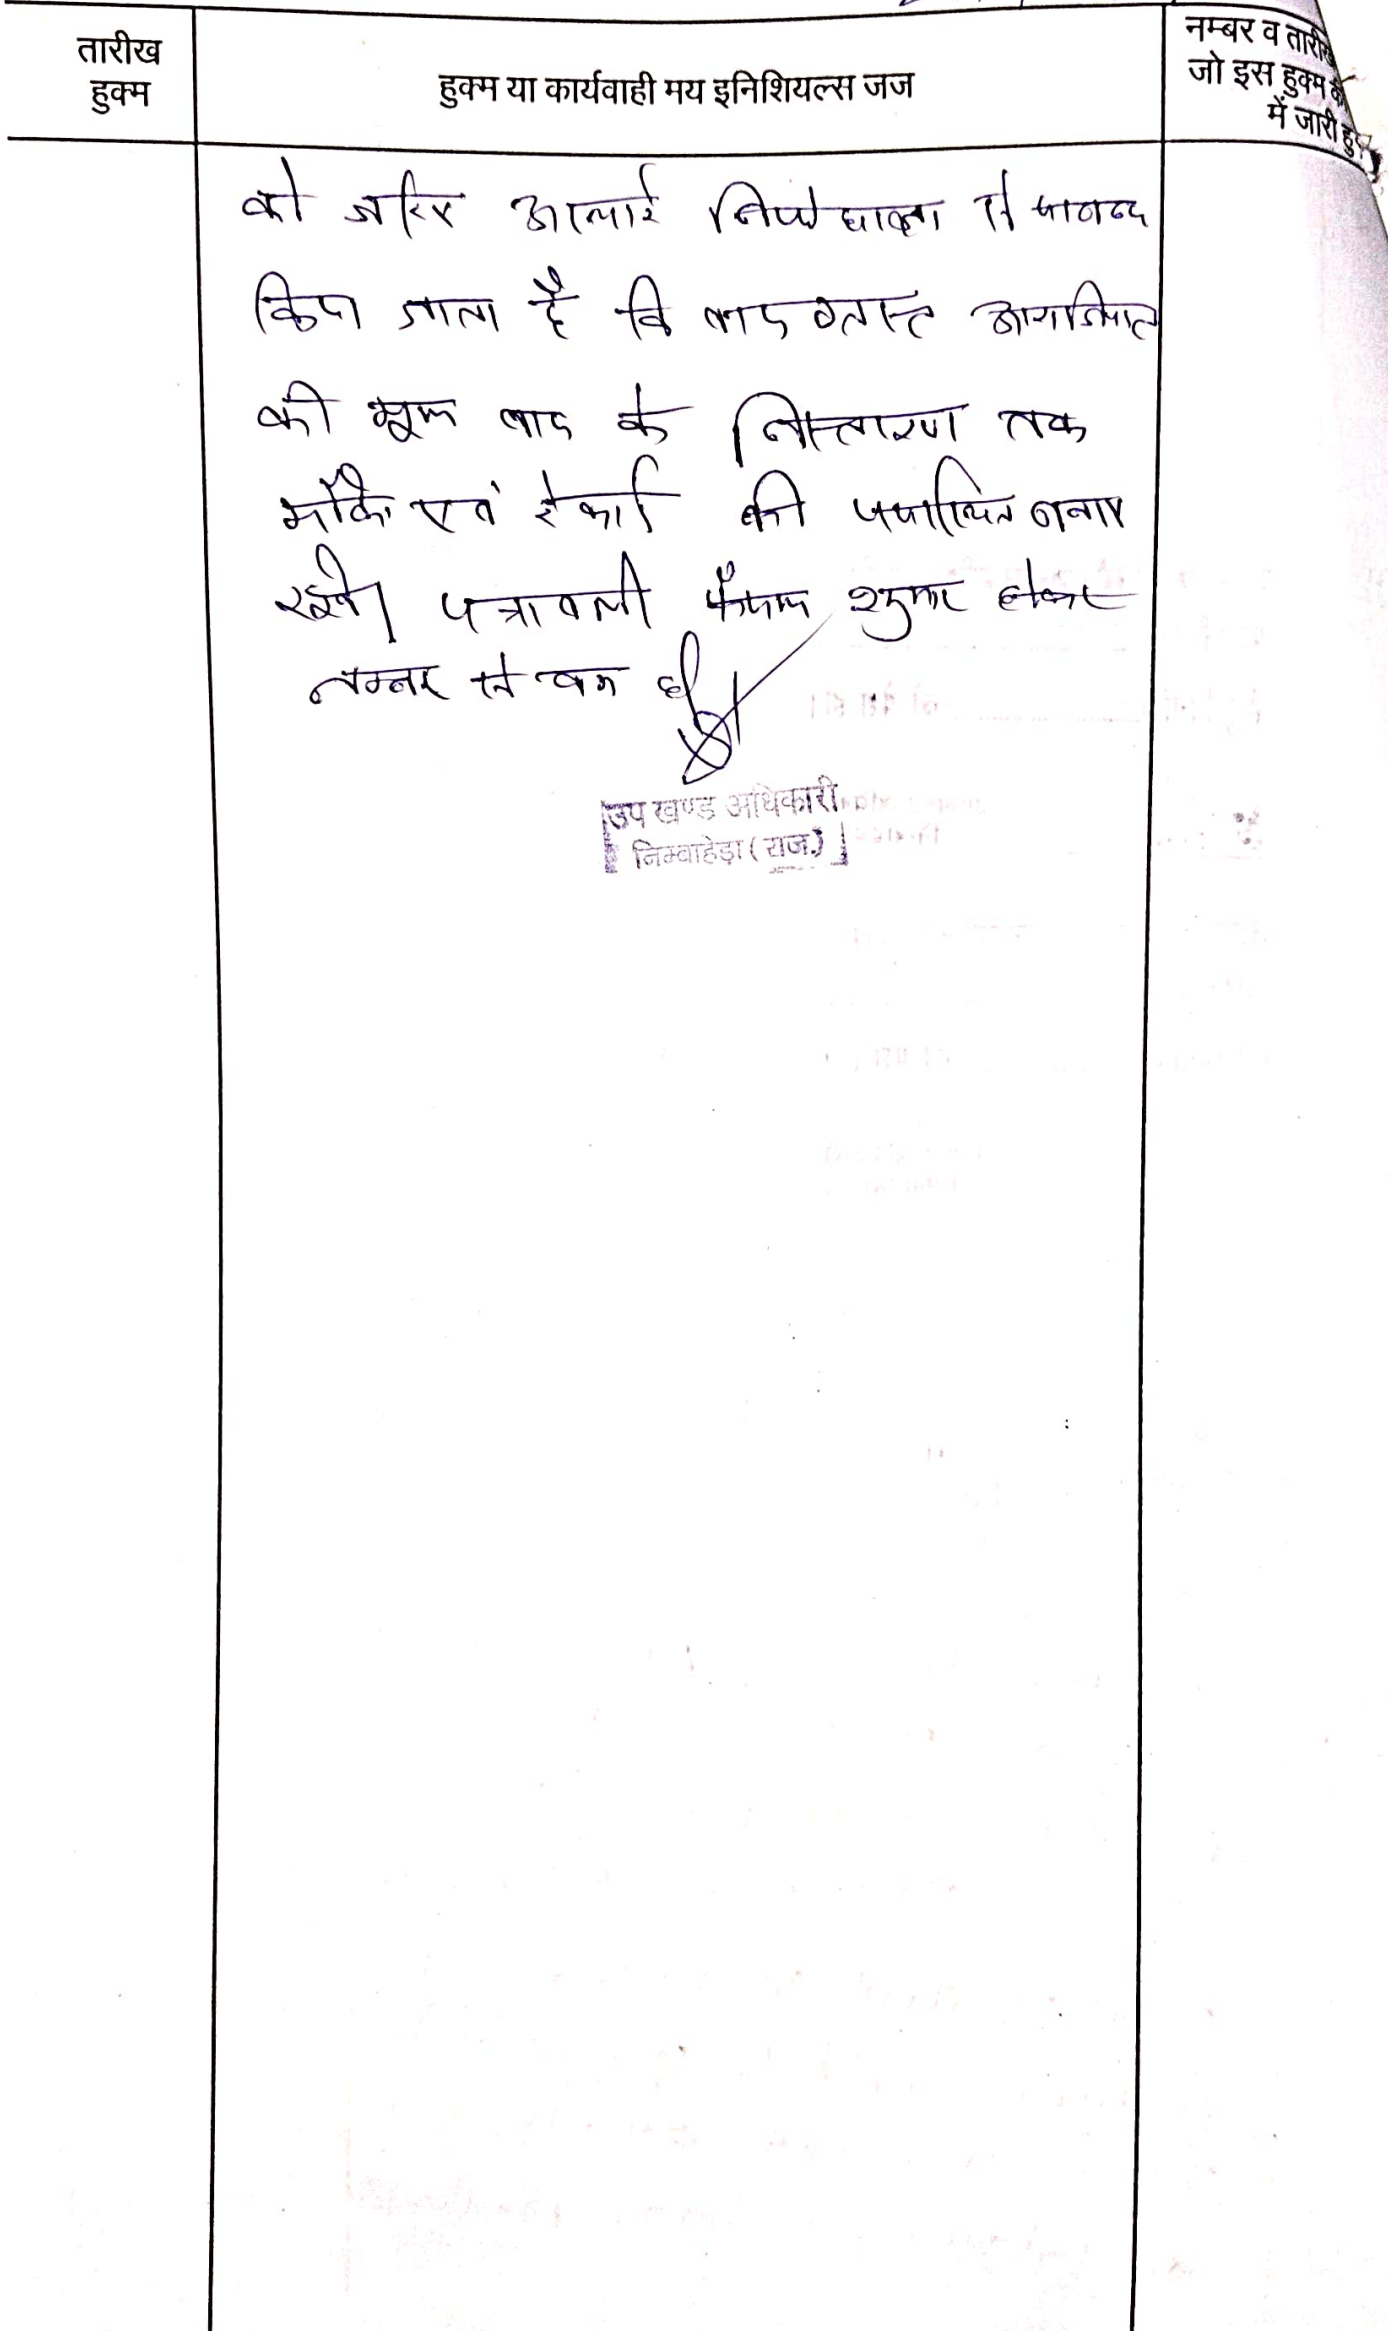 तारीख
हुक्म
हुक्म या कार्यवाही मय इनिशियल्स जज
नम्बर व तारीख
जो इस हुक्म के
में जारी हुए
को जरिए अस्थाई निषेधाज्ञा से पाबन्द
किया जाता है कि वाद ग्रस्त आराजियात
की मूल वाद के निस्तारण तक
मौके एवं रेकार्ड की यथास्थिति बनाए
रखें। पत्रावली फैसल शुमार होकर
नम्बर से कम हो
उप खण्ड अधिकारी
निम्बाहेड़ा (राज.)